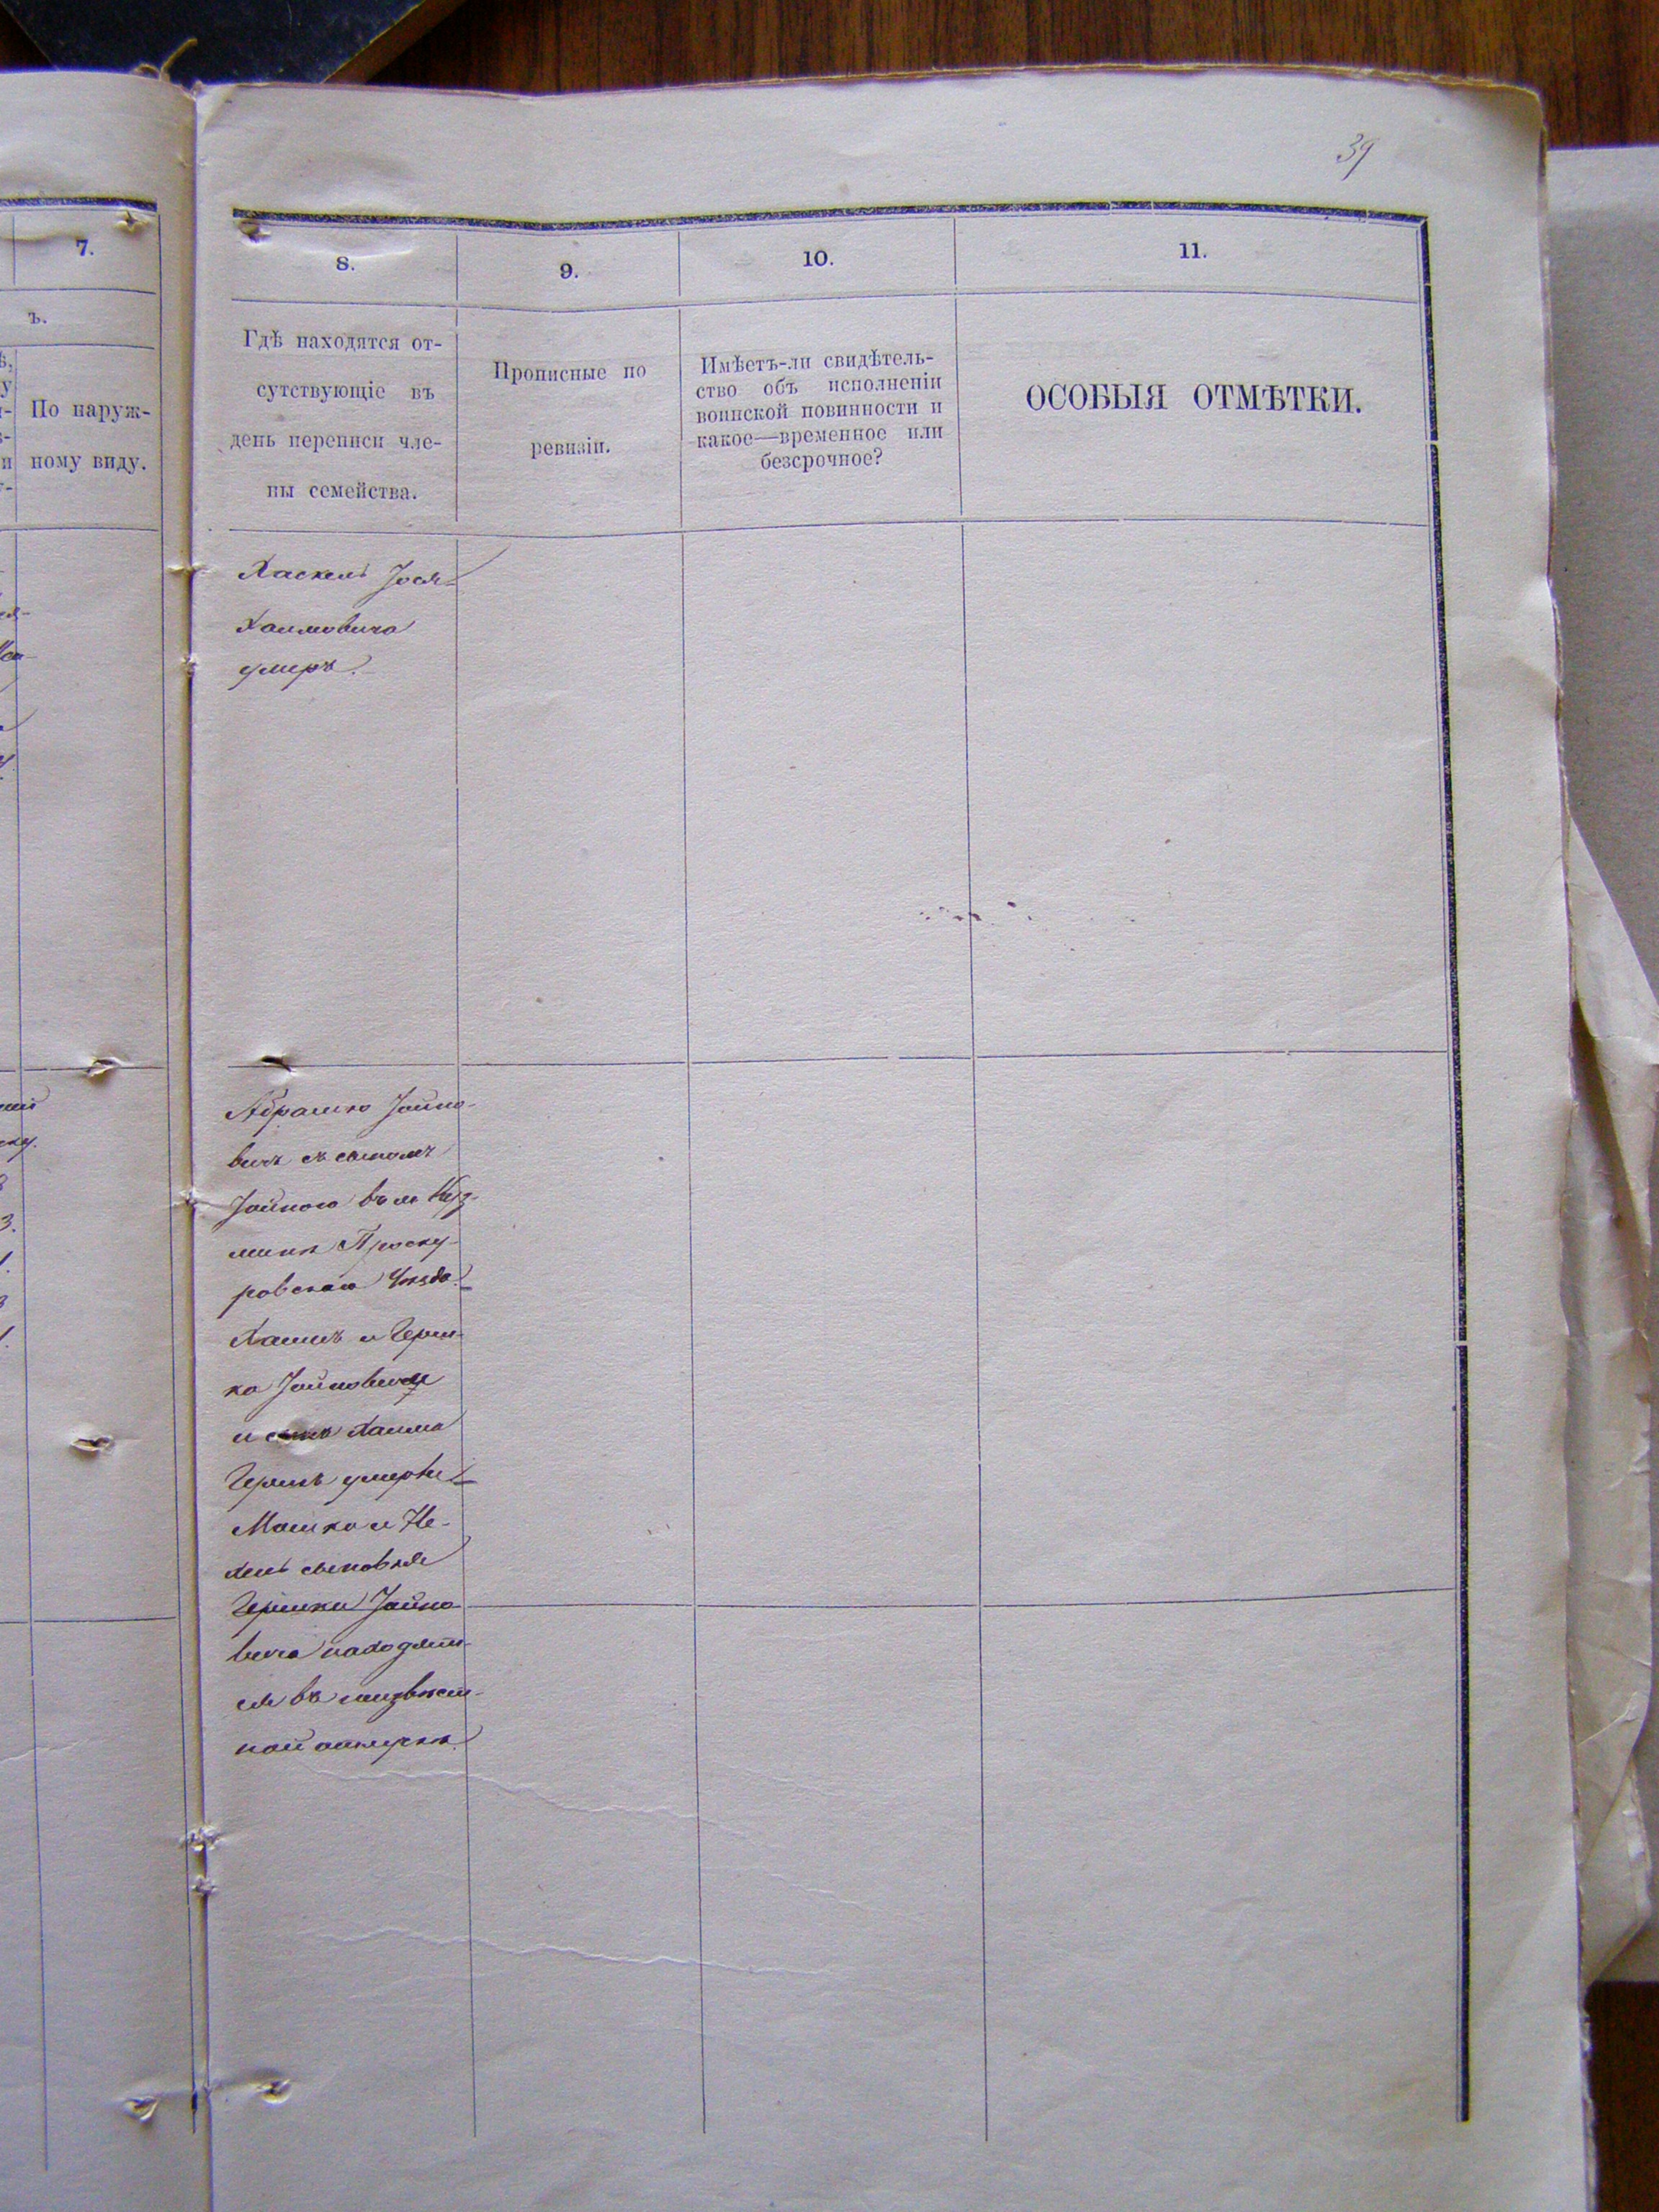 39
7.
8.
9.
10.
11.
ъ.
По наруж-
ному виду.
Гдѣ находятся от-
сутствующіе въ
день переписи чле-
ны семейства.
Прописные по
ревизіи.
Имѣетъ-ли свидѣтель-
ство объ исполненіи
воинской повинности и
какое—временное или
безсрочное?
ОСОБЫЯ ОТМѢТКИ.
Хаскель Іося-
Хаимовича
умеръ.
Абрамко Іойно-
вичъ съ сыномъ
Іойною въ м Куз-
минѣ Проску-
ровскаго Уѣзда.
Хаимъ и Герш-
ко Іойновичи
и сынъ Хаима
Гершъ умерли
Мошко и Не-
хеш сыновья
Гершки Іойно-
вича находят-
ся въ неизвѣст-
ной отлучкѣ.